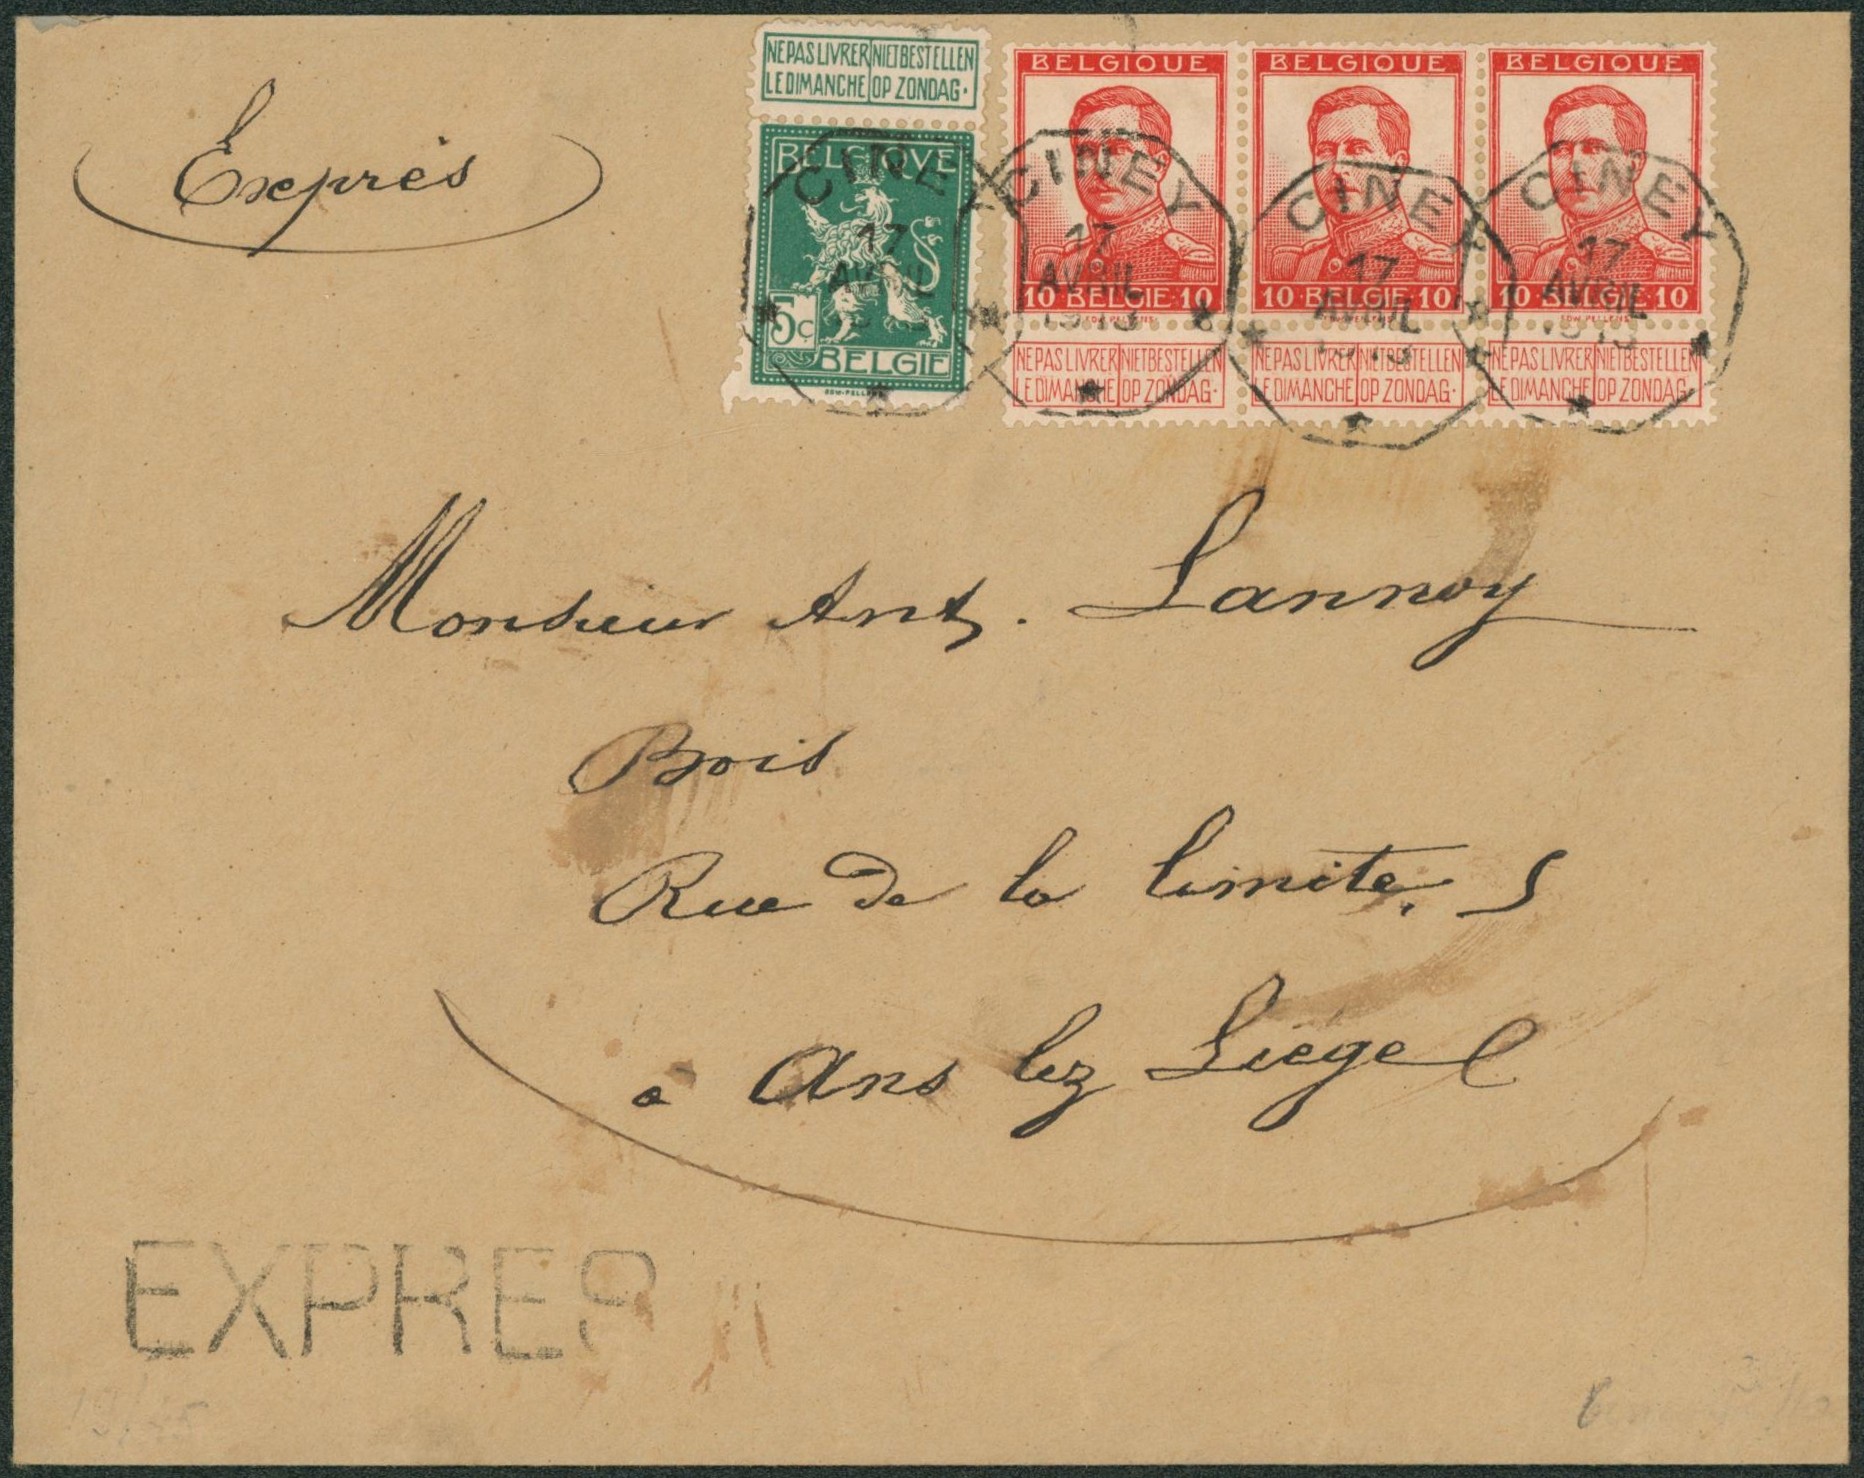 Exprès
NE PAS LIVRER NIET BESTELLEN
LE DIMANCHE OP ZONDAG.
BELGIQUE
5c
BELGIË
EDW. PELLENS
BELGIQUE BELGIQUE BELGIQUE
10 BELGIË 10 10 BELGIË 10 10 BELGIË 10
EDW. PELLENS. EDW. PELLENS. EDW. PELLENS.
NE PAS LIVRER NIET BESTELLEN NE PAS LIVRER NIET BESTELLEN NE PAS LIVRER NIET BESTELLEN
LE DIMANCHE OP ZONDAG. LE DIMANCHE OP ZONDAG. LE DIMANCHE OP ZONDAG.
CINEY CINEY CINEY CINEY
17 17 17 17
AVRIL AVRIL AVRIL AVRIL
1913 1913 1913
Monsieur Ant. Lannoy
Bois
Rue de la limite, 5
à Ans lez Liége
EXPRES